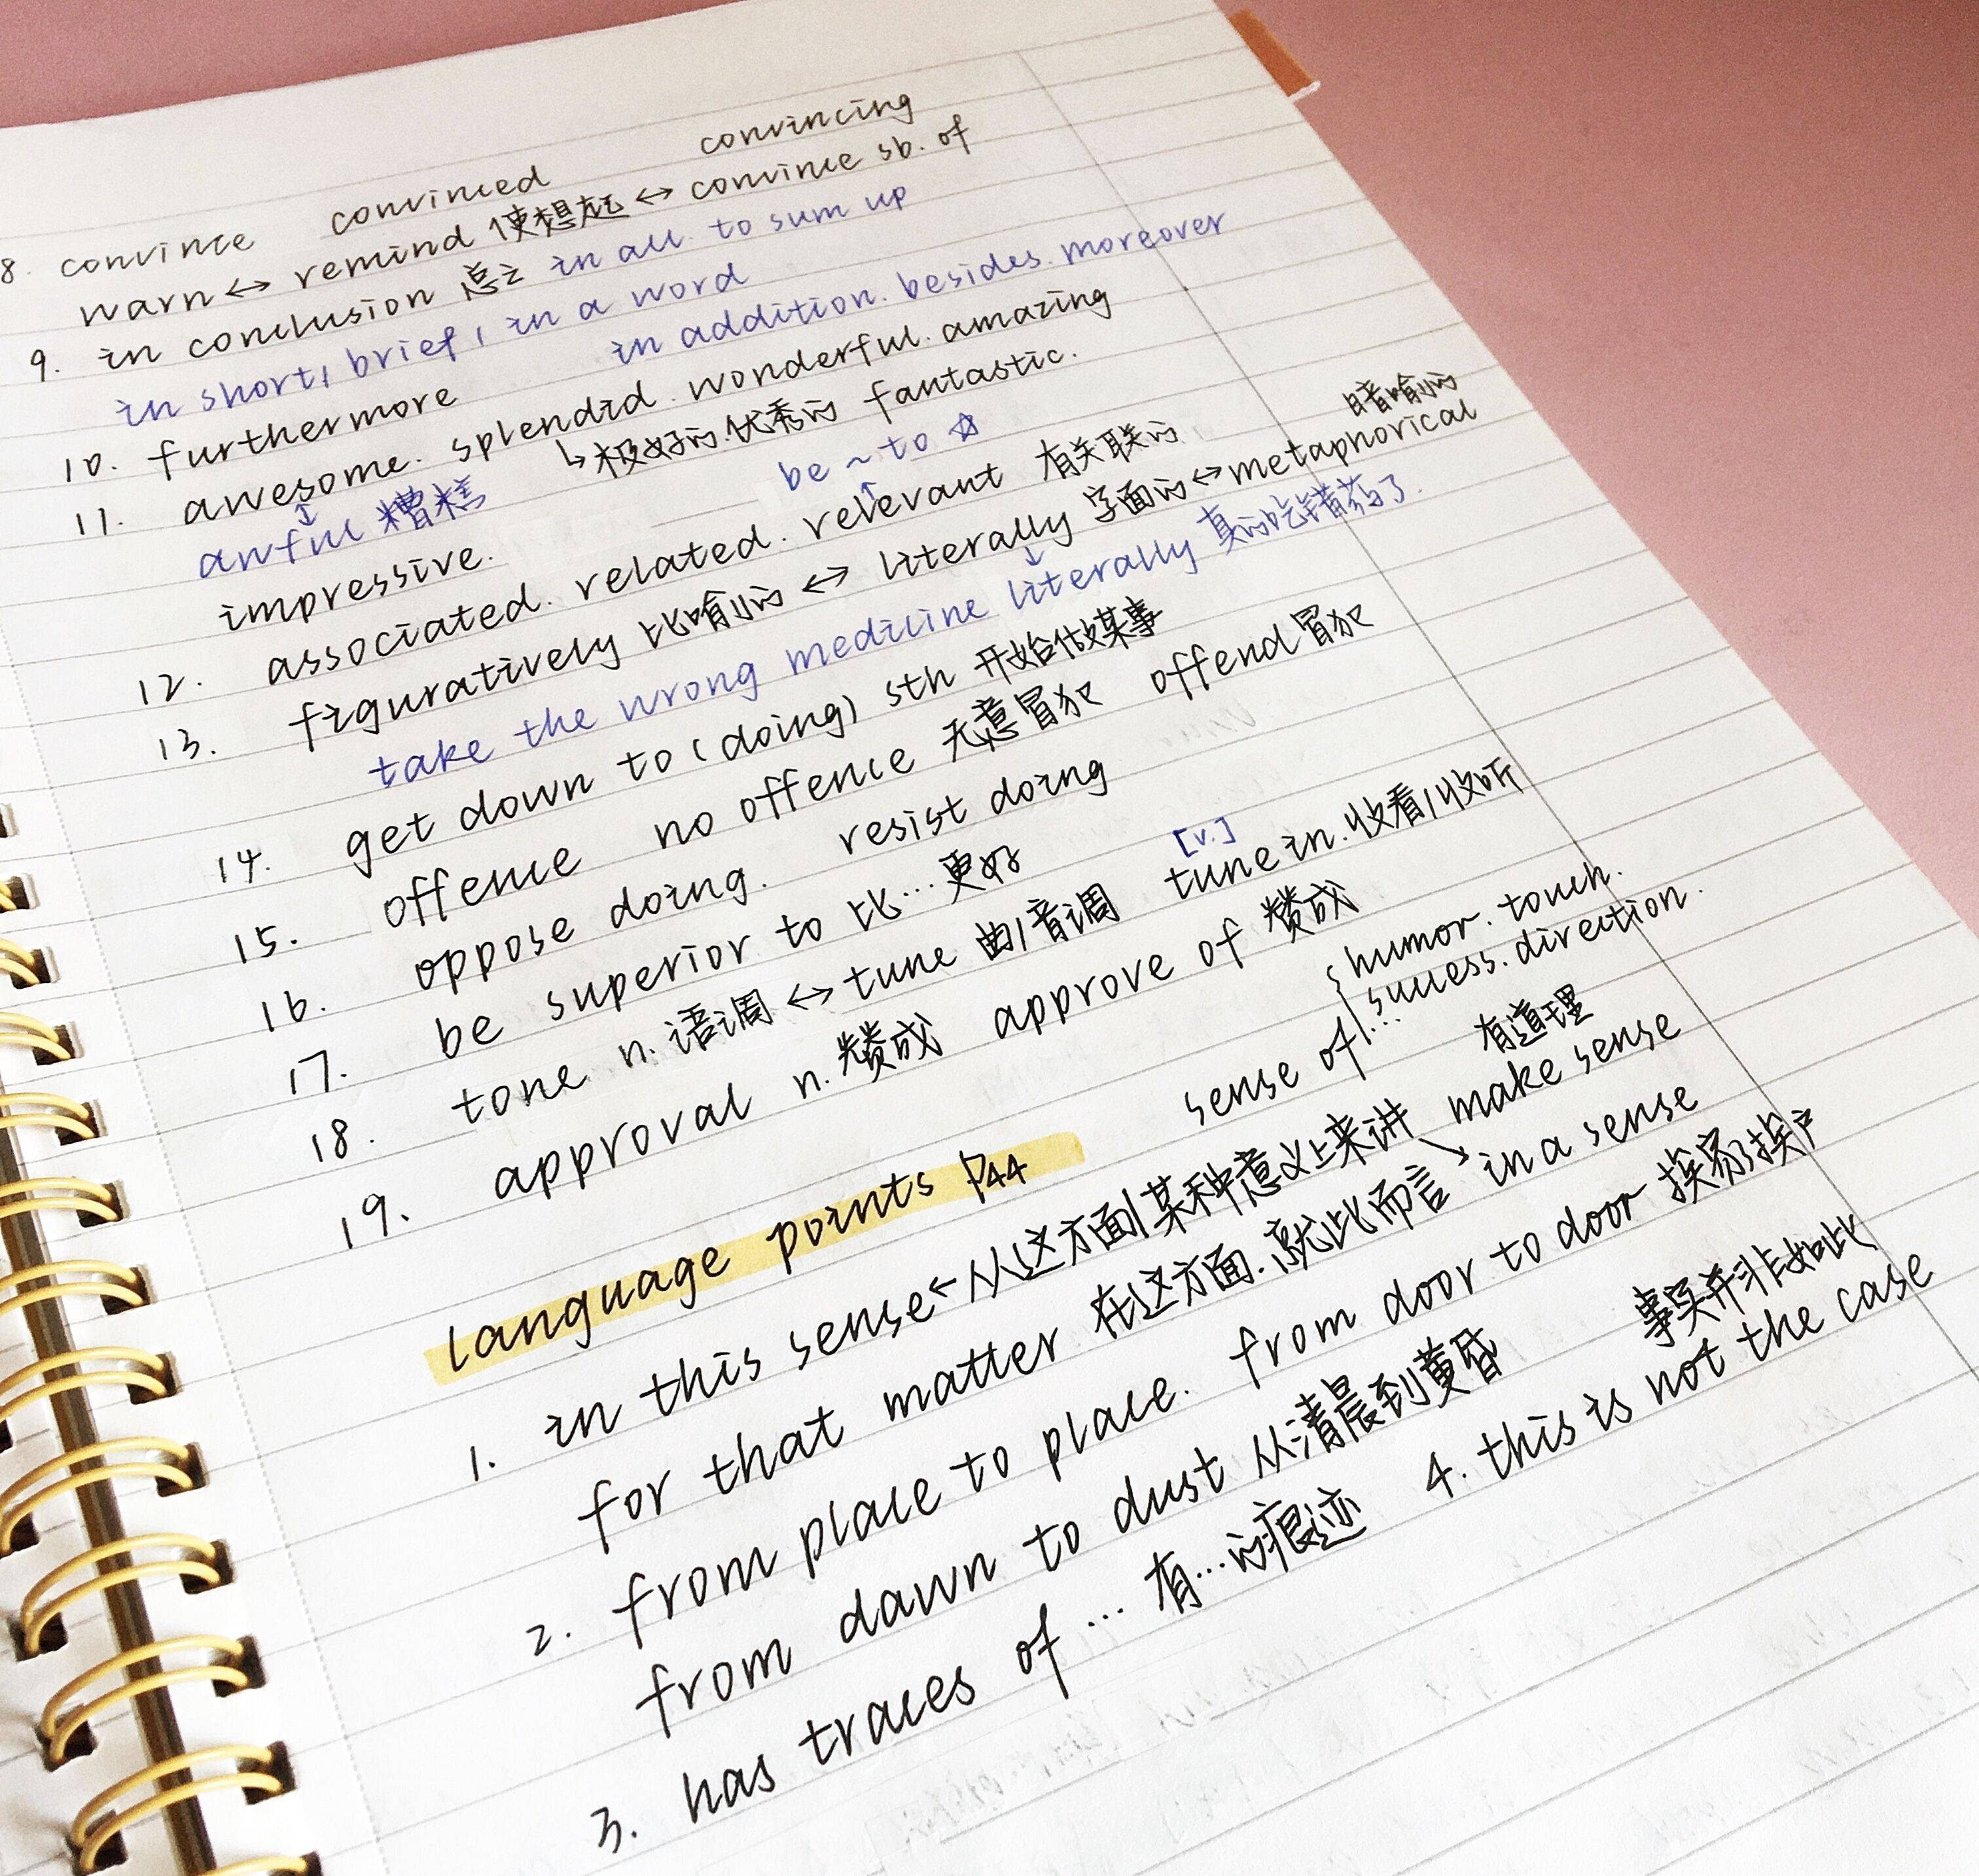 convinced convincing
8. convince
warn ↔ remind 使想起 ↔ convince sb. of
9. in conclusion 总之 in all. to sum up
in short, brief, in a word
10. furthermore in addition. besides. moreover
11. awesome. splendid. wonderful. amazing
↕ ↳极好的.优秀的 fantastic.
awful 糟糕
impressive. be ~ to ☆
↑
12. associated. related. relevant 有关联的
暗喻的
13. figuratively 比喻的 ↔ literally 字面的 ↔ metaphorical
↓
take the wrong medicine literally 真的吃错药了.
14. get down to (doing) sth 开始做某事
15. offence no offence 无意冒犯 offend 冒犯
16. oppose doing. resist doing
17. be superior to 比…更好
[v.]
18. tone n. 语调 ↔ tune 曲/音调 tune in. 收看/收听
19. approval n. 赞成 approve of 赞成
humor. touch.
sense of { success. direction.
...
language points P44
有道理
make sense
1. in this sense ← 从这方面/某种意义上来讲 ↘ in a sense
for that matter 在这方面.就此而言
2. from place to place. from door to door 挨家挨户
from dawn to dust 从清晨到黄昏
事实并非如此
3. has traces of … 有…的痕迹 4. this is not the case